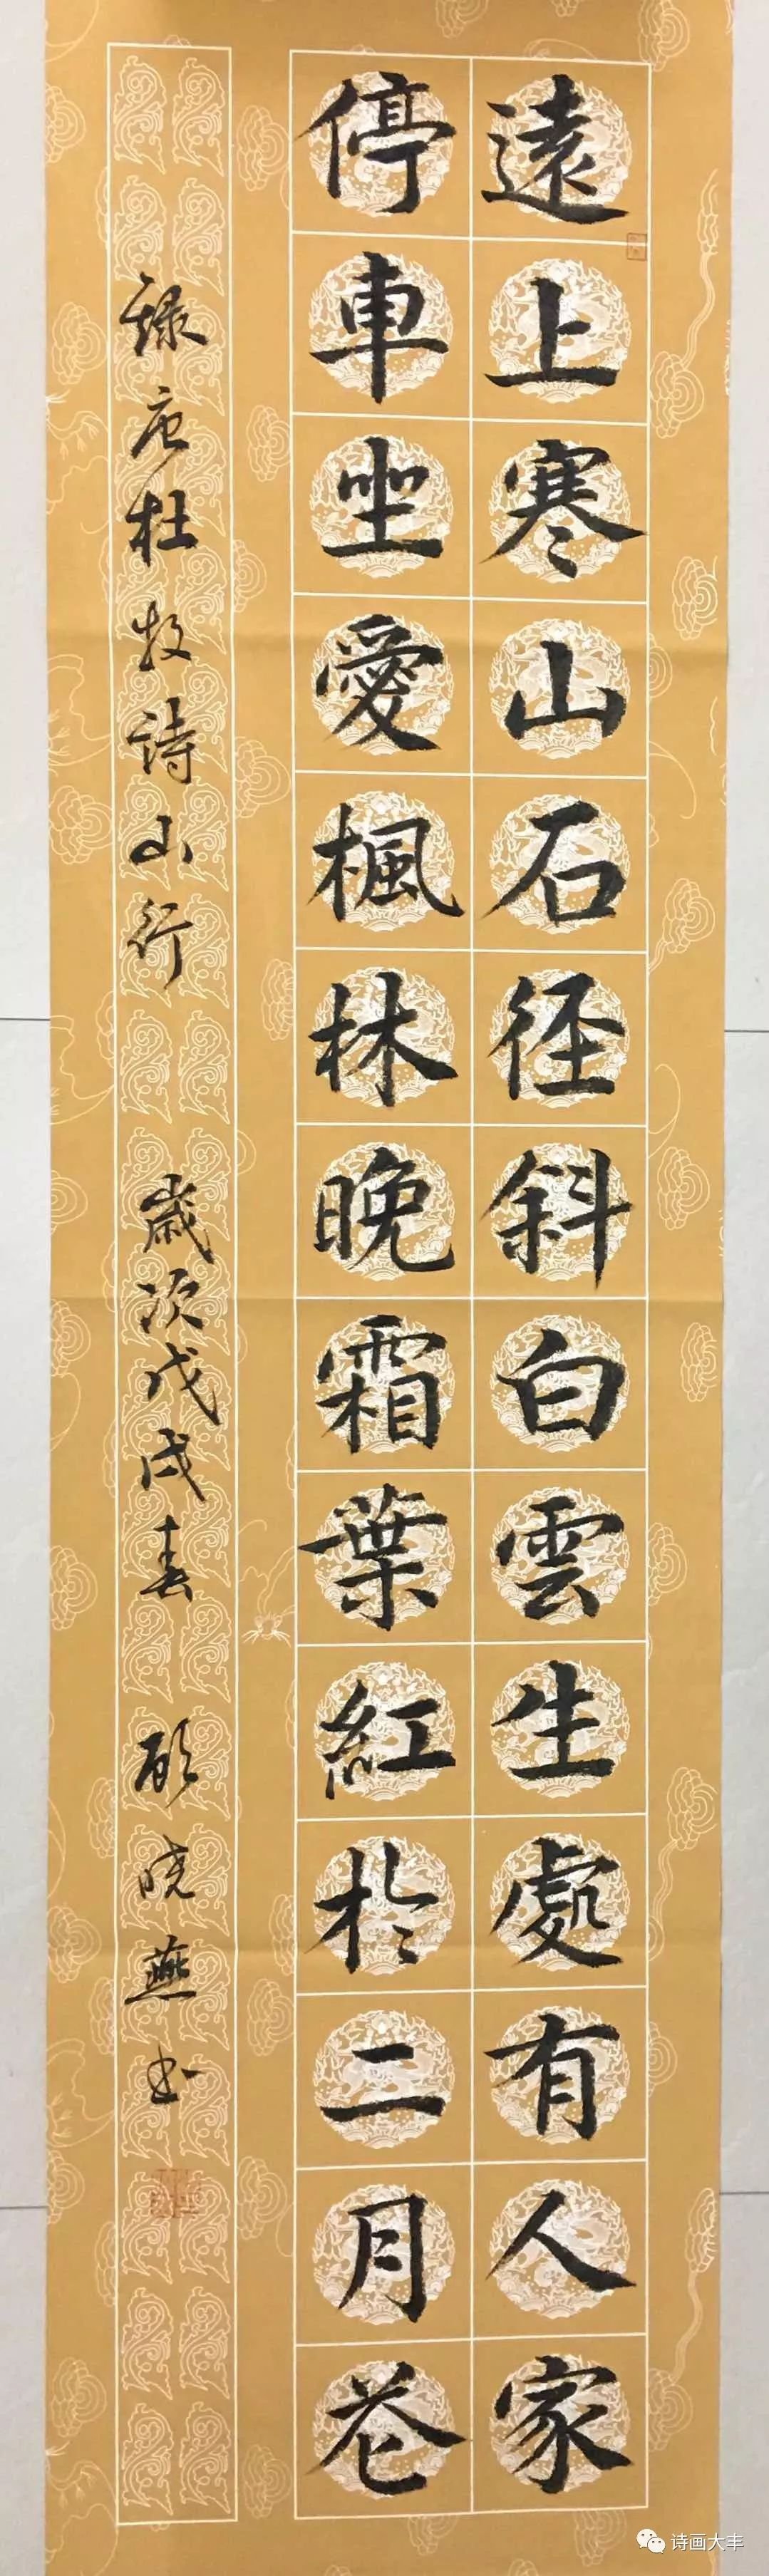 遠上寒山石径斜白雲生處有人家
停車坐愛楓林晚霜葉紅於二月花
録唐杜牧詩山行 歲次戊戌春 顾晓燕书
诗画大丰